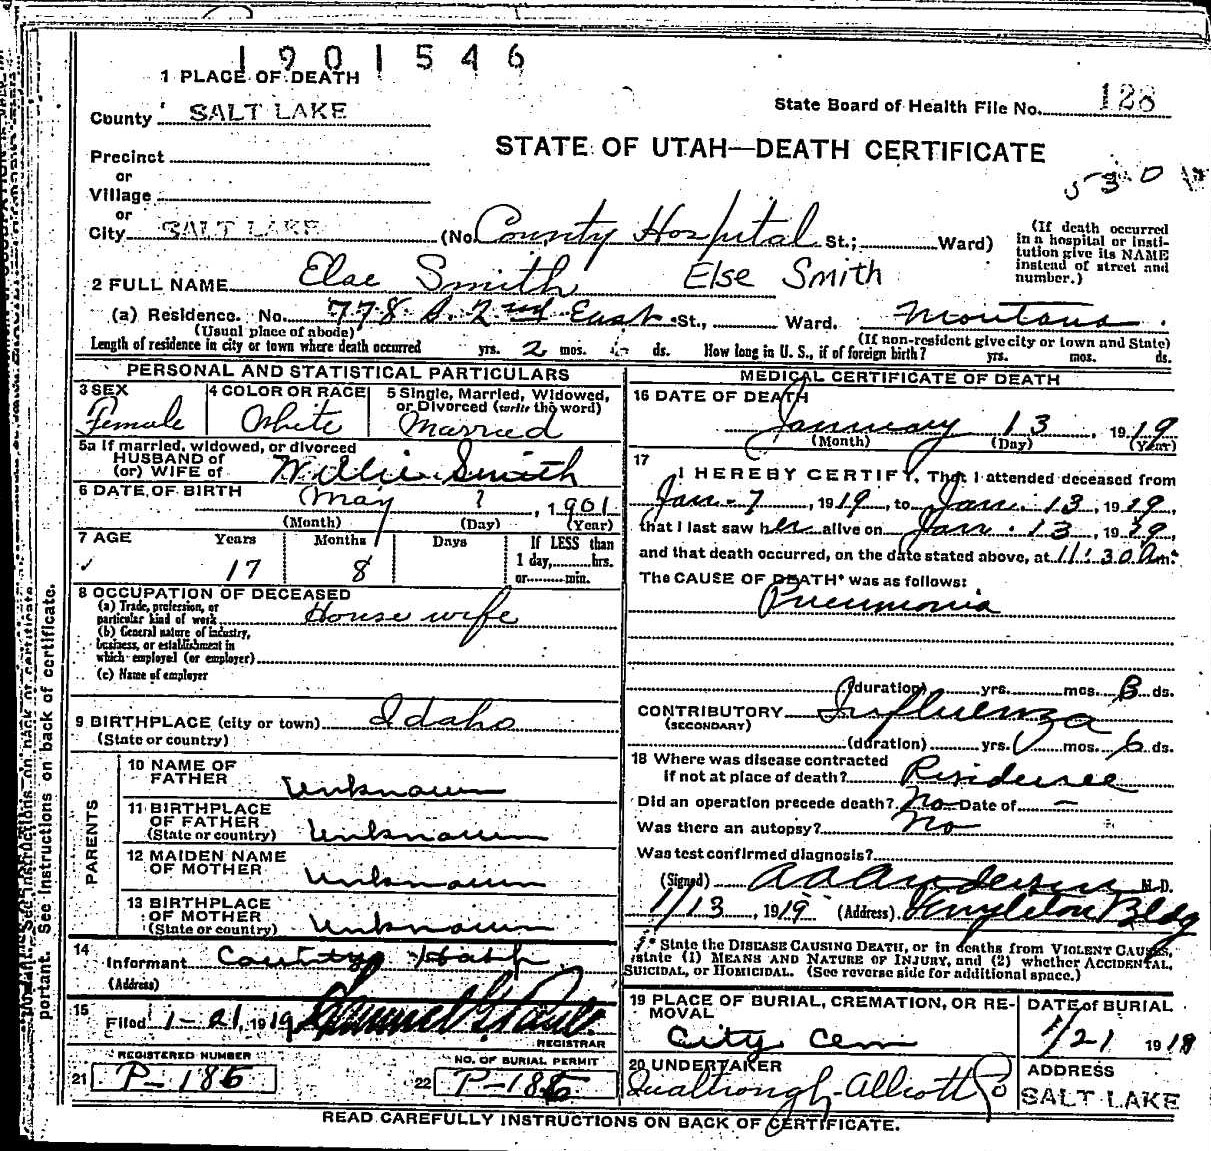 1901546
1 PLACE OF DEATH
State Board of Health File No. 128
County SALT LAKE
STATE OF UTAH—DEATH CERTIFICATE
Precinct
or
Village
or
City SALT LAKE (No. County Hospital St.; Ward)
(If death occurred in a hospital or institution give its NAME instead of street and number.)
2 FULL NAME Else Smith Else Smith
(a) Residence. No. 778 S. 2nd East St., Ward. Montana.
(Usual place of abode) (If non-resident give city or town and State)
Length of residence in city or town where death occurred yrs. 2 mos. ds. How long in U. S., if of foreign birth? yrs. mos. ds.
PERSONAL AND STATISTICAL PARTICULARS
3 SEX
Female
4 COLOR OR RACE
White
5 Single, Married, Widowed, or Divorced (write the word)
Married
5a If married, widowed, or divorced
HUSBAND of
(or) WIFE of Willie Smith
6 DATE OF BIRTH May ?, 1901
(Month) (Day) (Year)
7 AGE Years Months Days If LESS than
17 8 1 day, hrs.
or min.
8 OCCUPATION OF DECEASED
(a) Trade, profession, or particular kind of work House wife
(b) General nature of industry, business, or establishment in which employed (or employer)
(c) Name of employer
9 BIRTHPLACE (city or town) Idaho
(State or country)
PARENTS
10 NAME OF FATHER Unknown
11 BIRTHPLACE OF FATHER (State or country) Unknown
12 MAIDEN NAME OF MOTHER Unknown
13 BIRTHPLACE OF MOTHER (State or country) Unknown
14
Informant County Hosp
(Address)
15
Filed 1-21, 1919
REGISTRAR
REGISTERED NUMBER
21 P-185
NO. OF BURIAL PERMIT
22 P-185
MEDICAL CERTIFICATE OF DEATH
16 DATE OF DEATH
January 13, 1919
(Month) (Day) (Year)
17
I HEREBY CERTIFY, That I attended deceased from
Jan - 7, 1919, to Jan. 13, 1919,
that I last saw her alive on Jan. 13, 1919,
and that death occurred, on the date stated above, at 11:30 a m.
The CAUSE OF DEATH* was as follows:
Pneumonia
(duration) yrs. mos. 3 ds.
CONTRIBUTORY Influenza
(SECONDARY)
(duration) yrs. mos. 6 ds.
18 Where was disease contracted
if not at place of death? Residence
Did an operation precede death? No Date of —
Was there an autopsy? No
Was test confirmed diagnosis?
(Signed) A A Anderson M. D.
1/13, 1919 (Address) Templeton Bldg
* State the DISEASE CAUSING DEATH, or in deaths from VIOLENT CAUSES,
state (1) MEANS AND NATURE OF INJURY, and (2) whether ACCIDENTAL,
SUICIDAL, or HOMICIDAL. (See reverse side for additional space.)
19 PLACE OF BURIAL, CREMATION, OR REMOVAL
City Cem
DATE of BURIAL
1/21 1919
20 UNDERTAKER
Qualtrough-Allcott Co
ADDRESS
SALT LAKE
READ CAREFULLY INSTRUCTIONS ON BACK OF CERTIFICATE.
portant. See instructions on back of certificate.